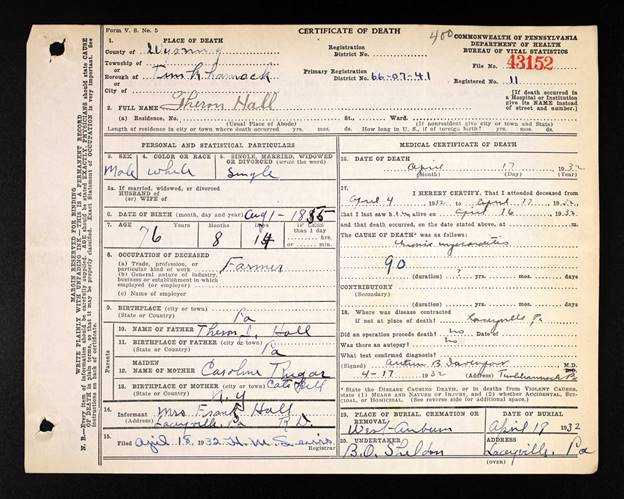 Form V. S. No. 5
CERTIFICATE OF DEATH
400
COMMONWEALTH OF PENNSYLVANIA
DEPARTMENT OF HEALTH
BUREAU OF VITAL STATISTICS
1. PLACE OF DEATH
County of Wyoming
Township of
Borough of Tunkhannock
City of
Registration District No.
Primary Registration District No. 66-07-41
File No. 43152
Registered No. 11
[If death occurred in a Hospital or Institution give its NAME instead of street and number.]
2. FULL NAME Theron Hall
(a) Residence, No. St., Ward.
(Usual Place of Abode) (If nonresident give city or town and State)
Length of residence in city or town where death occurred yrs. mos. ds. How long in U. S., if of foreign birth? yrs. mos. ds.
PERSONAL AND STATISTICAL PARTICULARS
3. SEX 4. COLOR OR RACE 5. SINGLE, MARRIED, WIDOWED OR DIVORCED (write the word)
Male White Single
5a. If married, widowed, or divorced
HUSBAND of
(or) WIFE of
6. DATE OF BIRTH (month, day and year) Aug 1 - 1855
7. AGE 76 8 14 If LESS than 1 day hrs. or min.
8. OCCUPATION OF DECEASED
(a) Trade, profession, or particular kind of work Farmer
(b) General nature of industry, business or establishment in which employed (or employer)
(c) Name of employer
9. BIRTHPLACE (city or town) Pa
(State or Country)
Parents
10. NAME OF FATHER Hall
11. BIRTHPLACE OF FATHER (city or town) Pa
(State or Country)
12. MAIDEN NAME OF MOTHER Caroline
13. BIRTHPLACE OF MOTHER (city or town) Catskill
(State or Country) N.Y
14. Informant Mrs Frank Hall
(Address) Laceyville, Pa R.D.
15. April 18, 1932 H. M. Lewis
MEDICAL CERTIFICATE OF DEATH
16. DATE OF DEATH
April 17 1932
(Month) (Day) (Year)
17. I HEREBY CERTIFY, That I attended deceased from
April 4 1932, to April 17 1932
that I last saw him alive on April 16 1932
and that death occurred, on the date stated above, at m.
The CAUSE OF DEATH* was as follows:
Chronic myocarditis
90
(duration) yrs. mos. ds.
CONTRIBUTORY
(Secondary)
(duration) yrs. mos. ds.
18. Where was disease contracted
if not at place of death? Laceyville Pa
Did an operation precede death? no
Was there an autopsy? no
What test confirmed diagnosis?
(Signed) Arthur B. Davenport M.D.
4-17 1932 (Address) Tunkhannock Pa
* State the DISEASE CAUSING DEATH, or in deaths from VIOLENT CAUSES, state (1) MEANS AND NATURE OF INJURY, and (2) whether ACCIDENTAL, SUICIDAL, or HOMICIDAL. (See reverse side.)
19. PLACE OF BURIAL, CREMATION OR REMOVAL DATE OF BURIAL
West Auburn April 19 1932
20. UNDERTAKER ADDRESS
B.O. Sheldon Laceyville, Pa
(OVER)
MARGIN RESERVED FOR BINDING
WRITE PLAINLY WITH UNFADING INK—THIS IS A PERMANENT RECORD